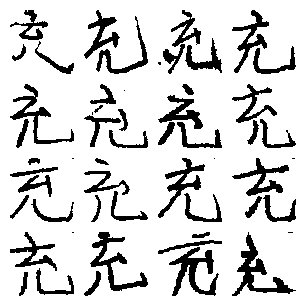 充充充充
充充充充
充充充充
充充充充